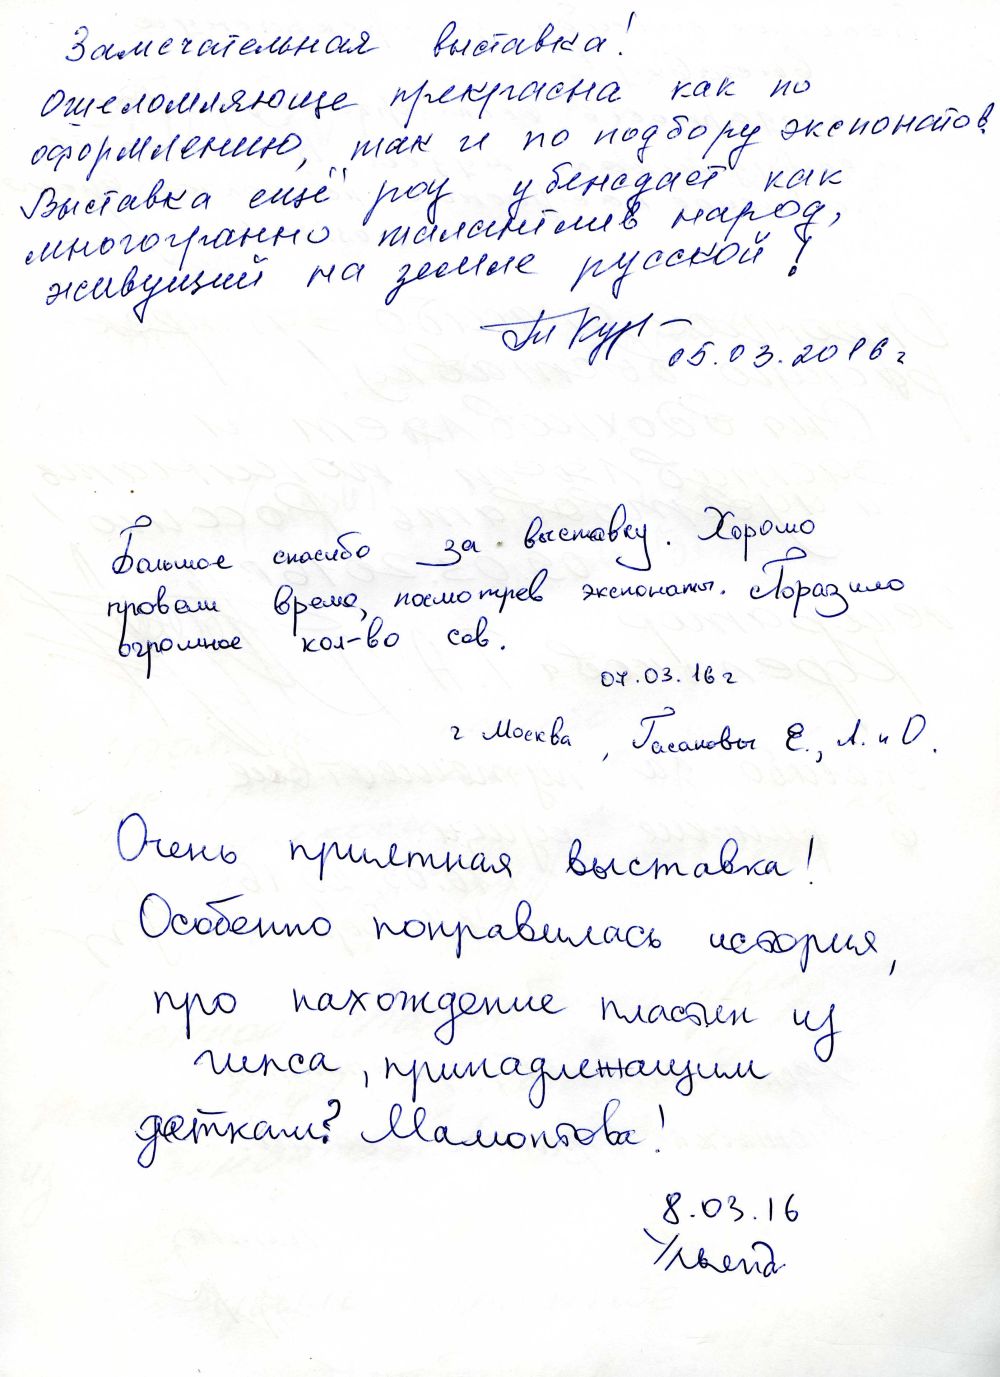 Замечательная выставка!
Ошеломляюще прекрасна как по
оформлению, так и по подбору экспонатов.
Выставка ещё роз убеждает как
многогранно талантлив народ,
живущий на земле русской!
05.03.2016 г
Большое спасибо за выставку. Хорошо
провели время, посмотрев экспонаты. Поразило
огромное кол-во сов.
07.03.16 г
г Москва, Гасановы Е., Л. и О.
Очень приятная выставка!
Особенно понравилась история,
про нахождение пластин из
гипса, принадлежащим
деткам? Мамонтова!
8.03.16